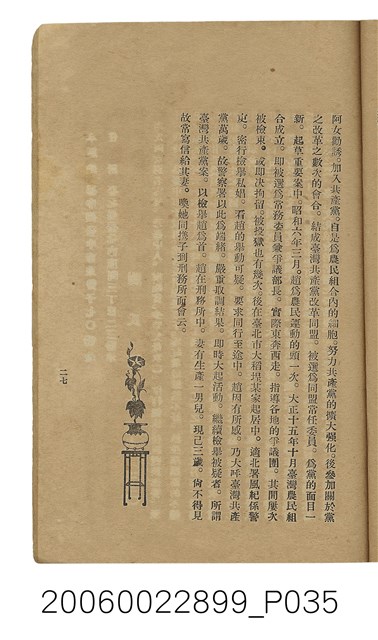 阿女勸誘。加入共產黨。自是爲農民組合內的細胞。努力共產黨的擴大强化。後參加關於黨
之改革之數次的會合。結成臺灣共產黨改革同盟。被選爲同盟常任委員。爲黨的面目一
新。起草重要案中。昭和六年三月。趙爲農民運動的頭一次。大正十五年十月臺灣農民組
合成立。即被選爲常務委員兼爭議部長。實際東奔西走。指導各地的爭議團。其間屢次
被檢束。或即决拘留。被投獄也有幾次。後在臺北市大稻埕某家起居中。適北署風紀係警
吏。密行檢舉私娼。看趙的舉動可疑。要求同行至途中。趙因有所感。乃大呼臺灣共產
黨萬歲。故警察署以此爲端緒。嚴重取調結果。即時大起活動。繼續檢舉被疑者。所謂
臺灣共產黨案。以檢舉趙爲首。趙在刑務所中。妻有生產一男兒。現已三歲。尙不得見
故常寫信給其妻。喚她同携子到刑務所面會云。
二七
20060022899_P035